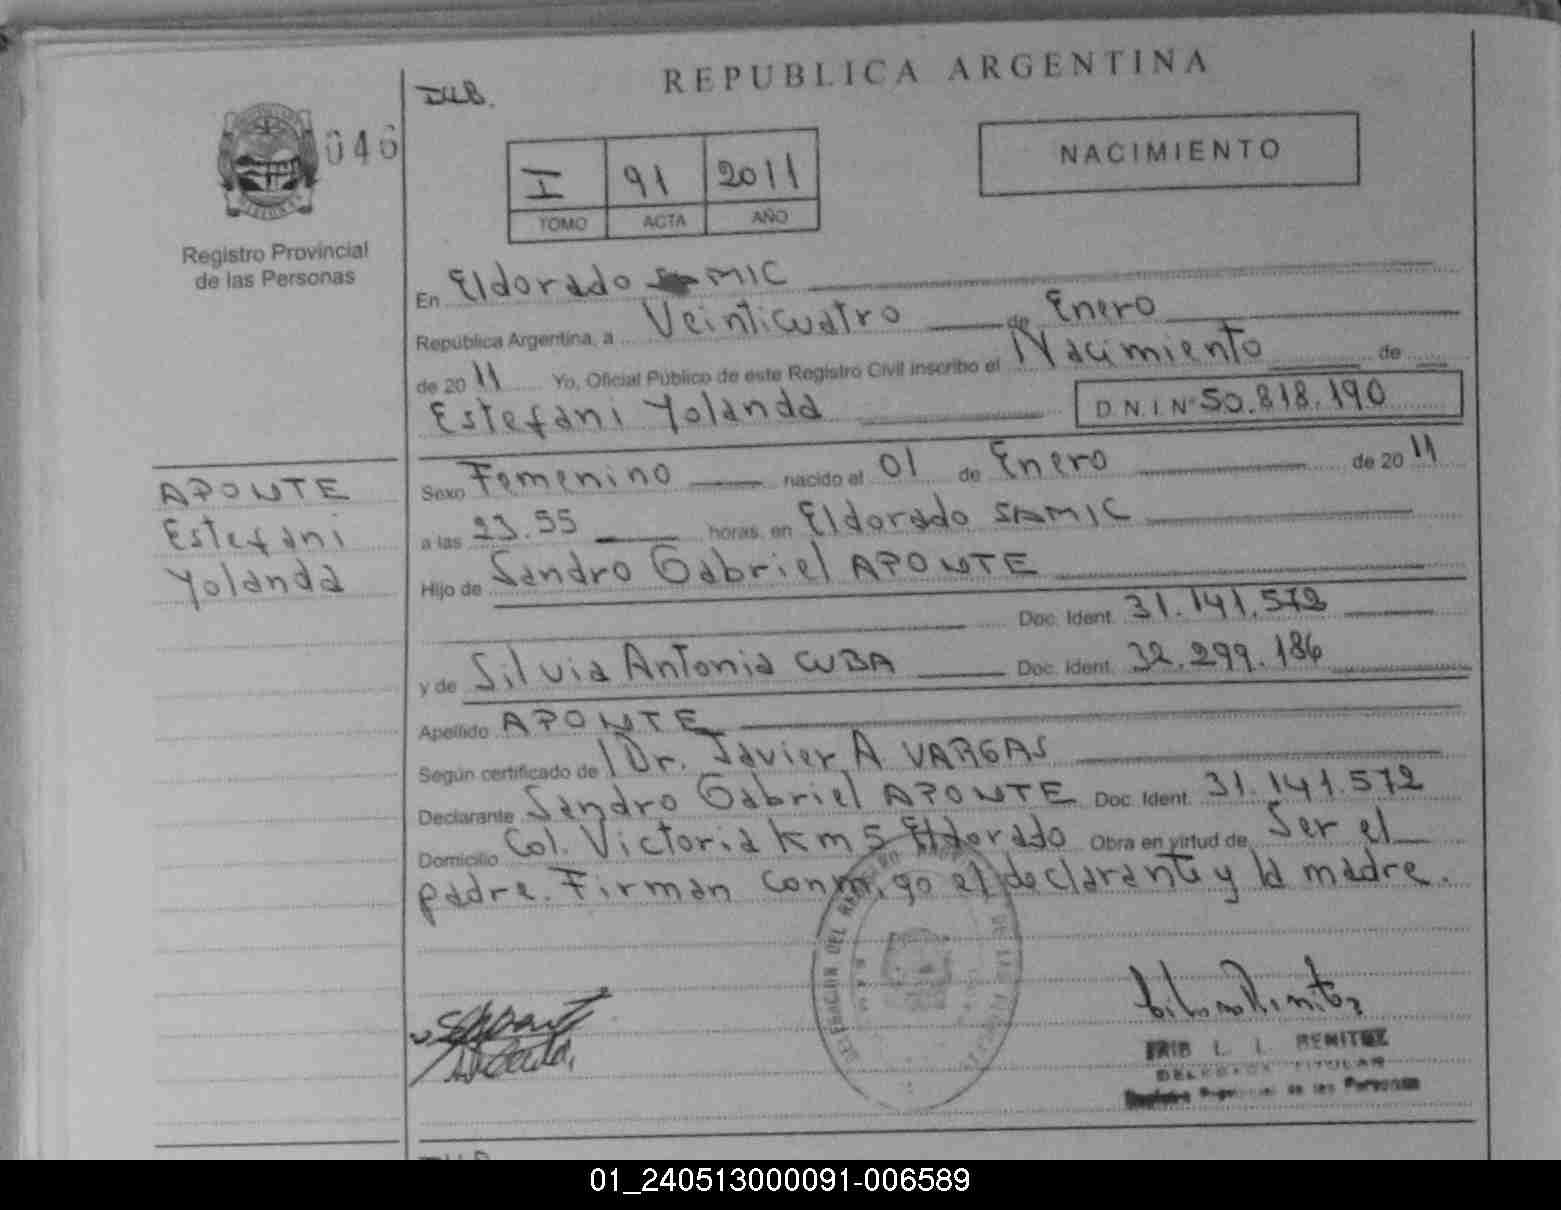 REPUBLICA ARGENTINA
046
I 91 2011
TOMO ACTA AÑO
NACIMIENTO
Registro Provincial
de las Personas
En Eldorado SAMIC
República Argentina, a Veinticuatro de Enero
de 2011 Yo, Oficial Público de este Registro Civil inscribo el Nacimiento de
Estefani Yolanda D.N.I. Nº 50.818.190
APONTE
Estefani
Yolanda
Sexo Femenino nacido el 01 de Enero de 2011
a las 23.55 horas, en Eldorado SAMIC
Hijo de Sandro Gabriel APONTE
Doc. Ident. 31.141.572
y de Silvia Antonia CUBA Doc. Ident. 32.299.186
Apellido APONTE
Según certificado de Dr. Javier A. VARGAS
Declarante Sandro Gabriel APONTE Doc. Ident. 31.141.572
Domicilio Col. Victoria Km 5 Eldorado Obra en virtud de Ser el
padre. Firman conmigo el declarante y la madre.
DELEGACION DEL
L. I. BENITEZ
DELEGADA TITULAR
Registro Provincial de las Personas
01_240513000091-006589